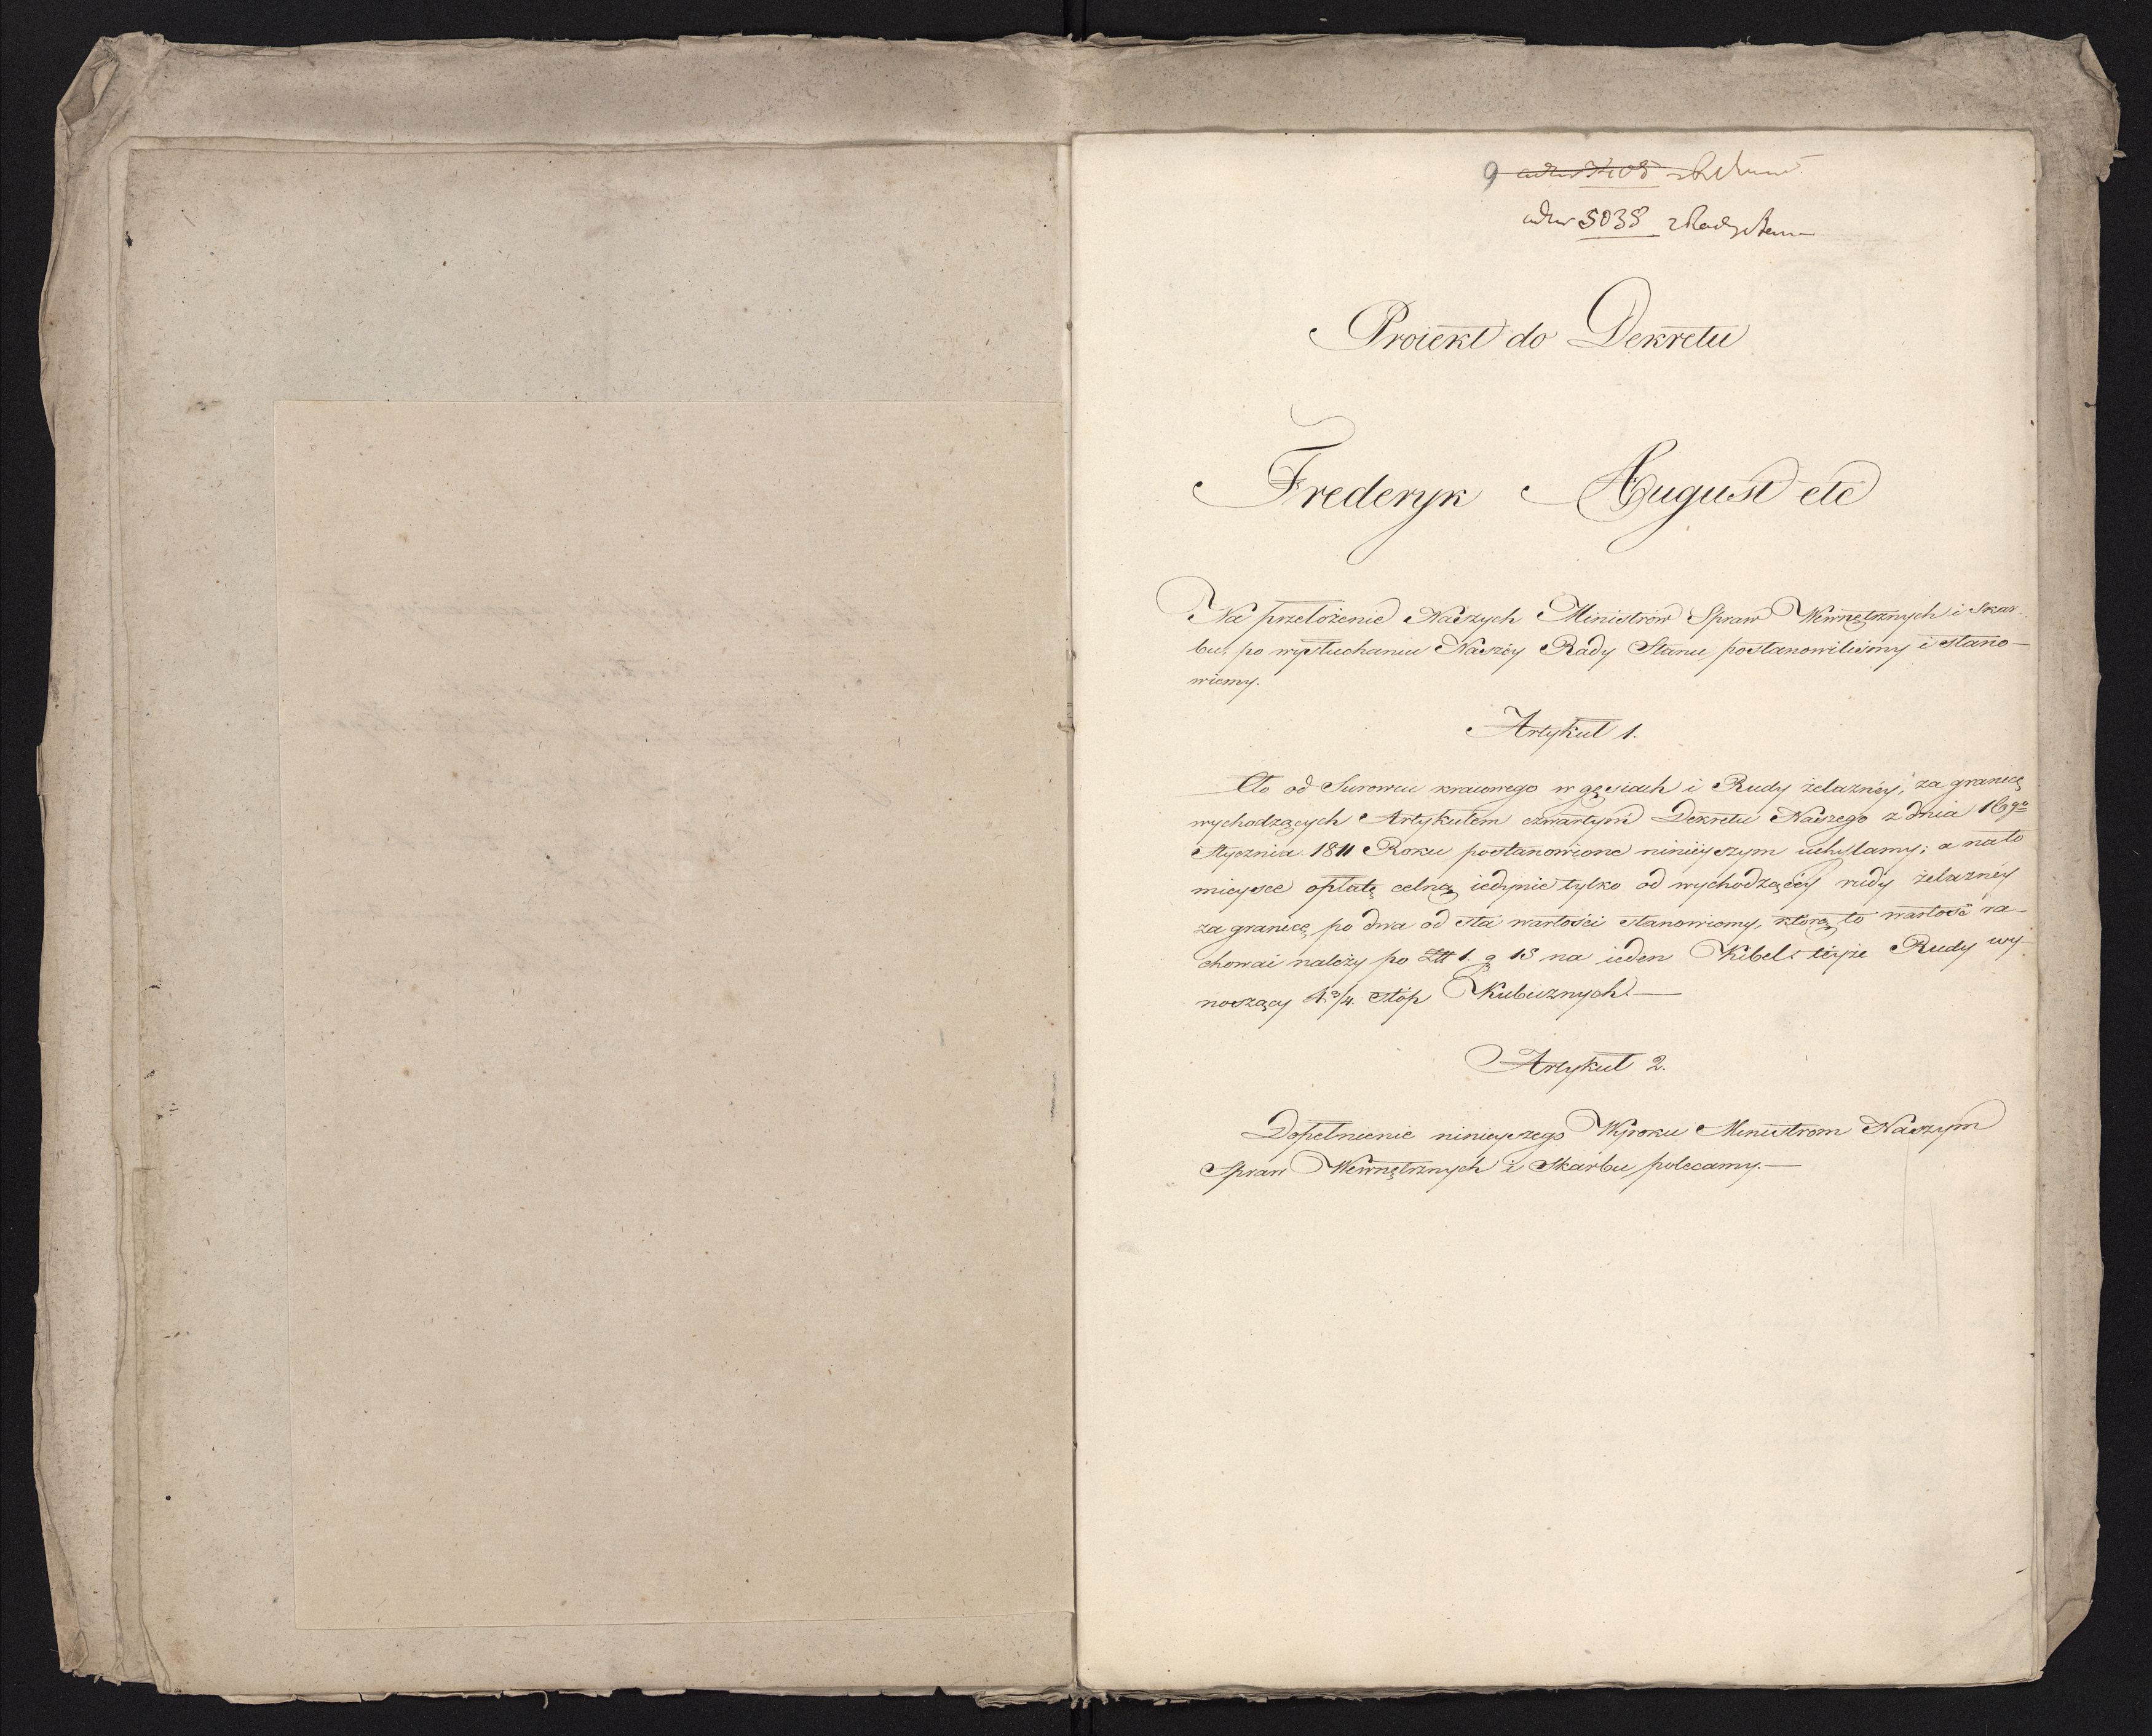 9
5038
Proiekt do Dekretu
Frederyk August etc
Na przełożenie Naszych Ministrów Spraw Wewnętrznych i Skar-
bu, po wysłuchaniu Naszéy Rady Stanu, postanowiliśmy i stano-
wiemy.
Artykuł 1.
Cło od Surowcu kraiowego w gęsiach i Rudy żelaznéy, za granicę
wychodzących Artykułem czwartym Dekretu Naszego z dnia 16go
Stycznia 1811 Roku postanowione ninieyszym uchylamy; a na to
mieysce opłatę celną iedynie tylko od wychodzącéy rudy żelaznéy
za granicę, po dwa od sta wartości stanowiemy, którą to wartość ra-
chować należy po Złt 1. g 15 na ieden Kibel téyże Rudy wy-
noszący 4 3/4. stóp Kubicznych.—
Artykuł 2.
Dopełnienie ninieyszego Wyroku Ministrom Naszym
Spraw Wewnętrznych i Skarbu polecamy.—